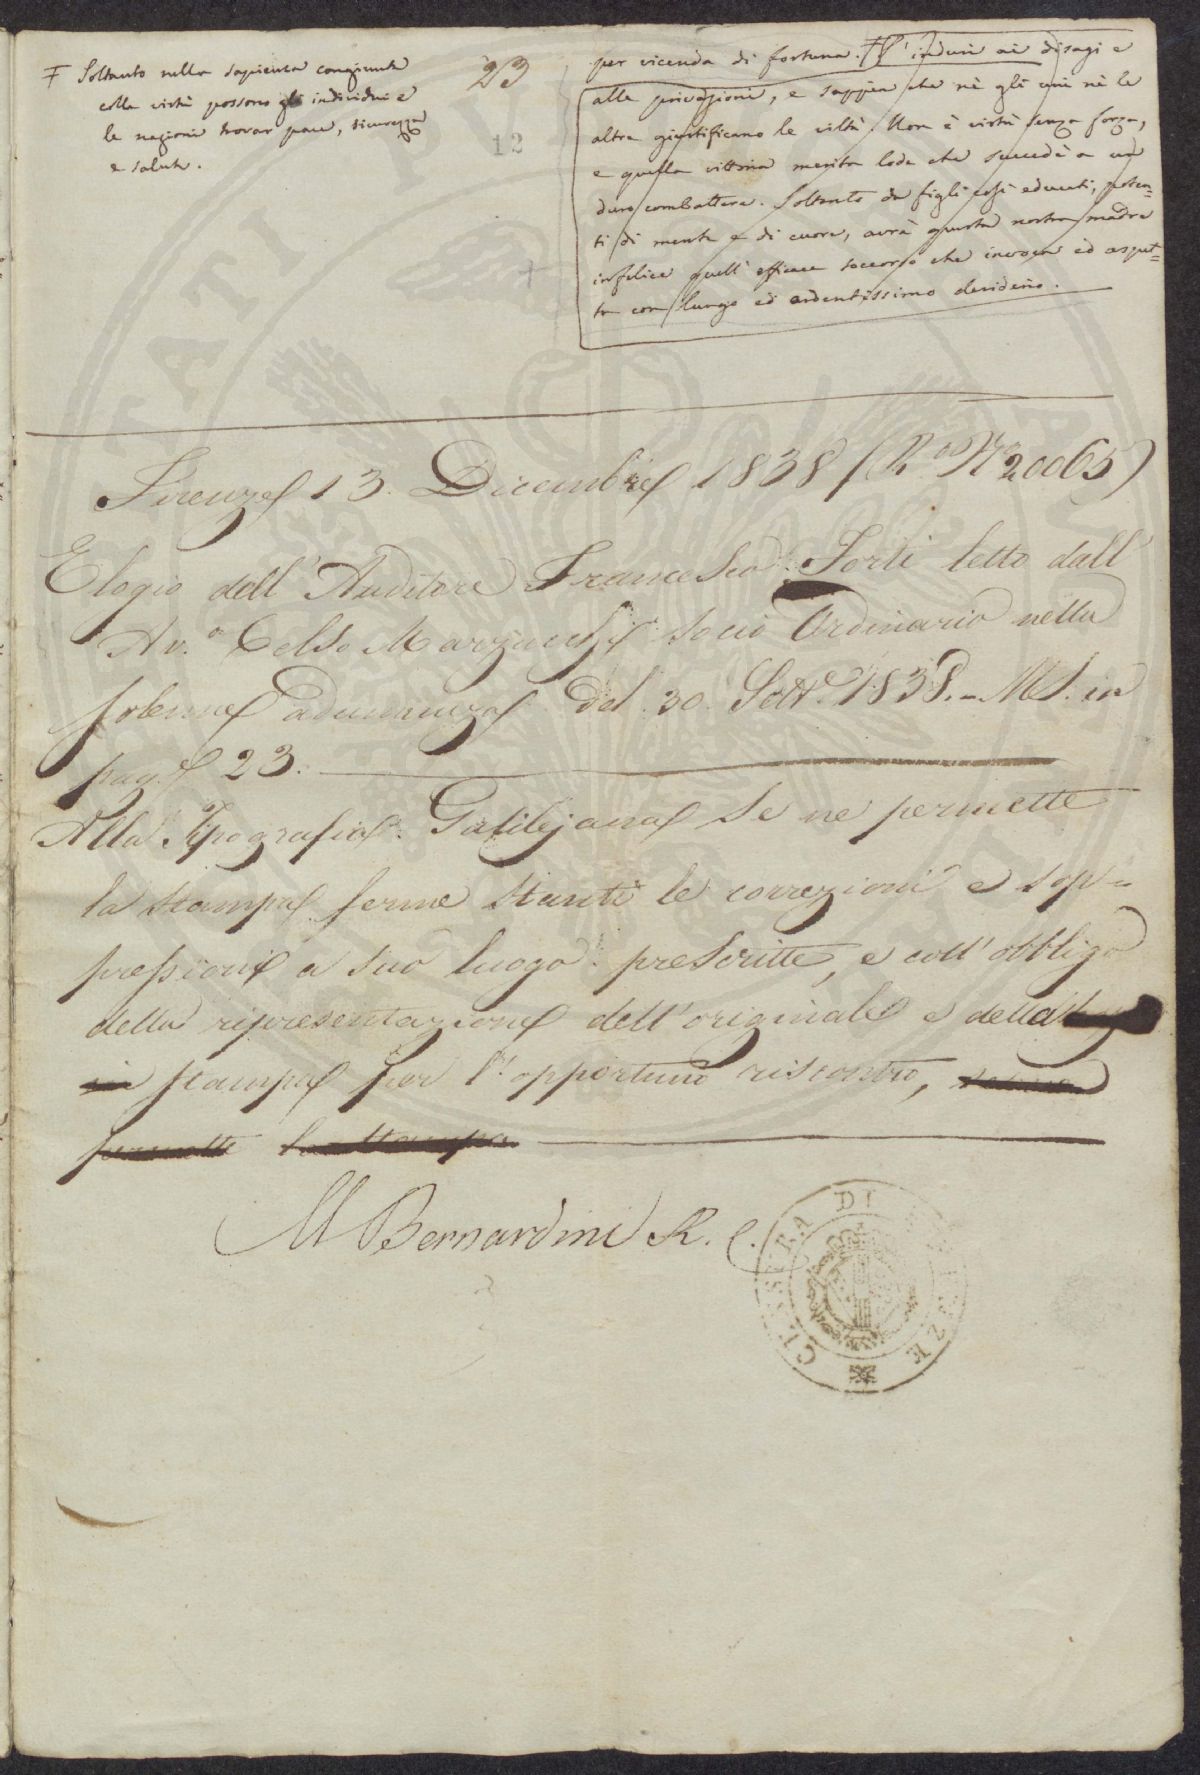 Ŧ Soltanto nella sapienza congiunta
colla virtù possono gli individui e
le nazioni trovar pace, sicurezza
e salute.
23
12
per vicenda di fortuna. Ŧ S'induri ai disagi e
alle privazioni, e sappia che nè gli uni nè le
altre giustificano le viltà. Non è virtù senza forza,
e quella vittoria merita lode che succede a un
duro combattere. Soltanto da figli così educati, poten-
ti di mente e di cuore, avrà questa nostra madre
infelice quell'efficace soccorso che invoca ed aspet-
ta con lungo ed ardentissimo desiderio.
Firenze 13. Dicembre 1838 (R.o N.o 20065)
Elogio dell'Auditore Francesco Forti letto dall'
Av.o Celso Marzucchi socio Ordinario nella
solenne adunanza del 30. Sett.e 1838. - MS. in
pag.e 23.
Alla Tipografia Galilejana Se ne permette
la stampa ferme stanti le correzioni e sop=
pressioni a suo luogo prescritte, e coll'obbligo
della ripresentazione dell'originale e della
in stampa per l'opportuno riscontro,
permette la stampa
M Bernardini R. C.
CENSURA DI FIRENZE